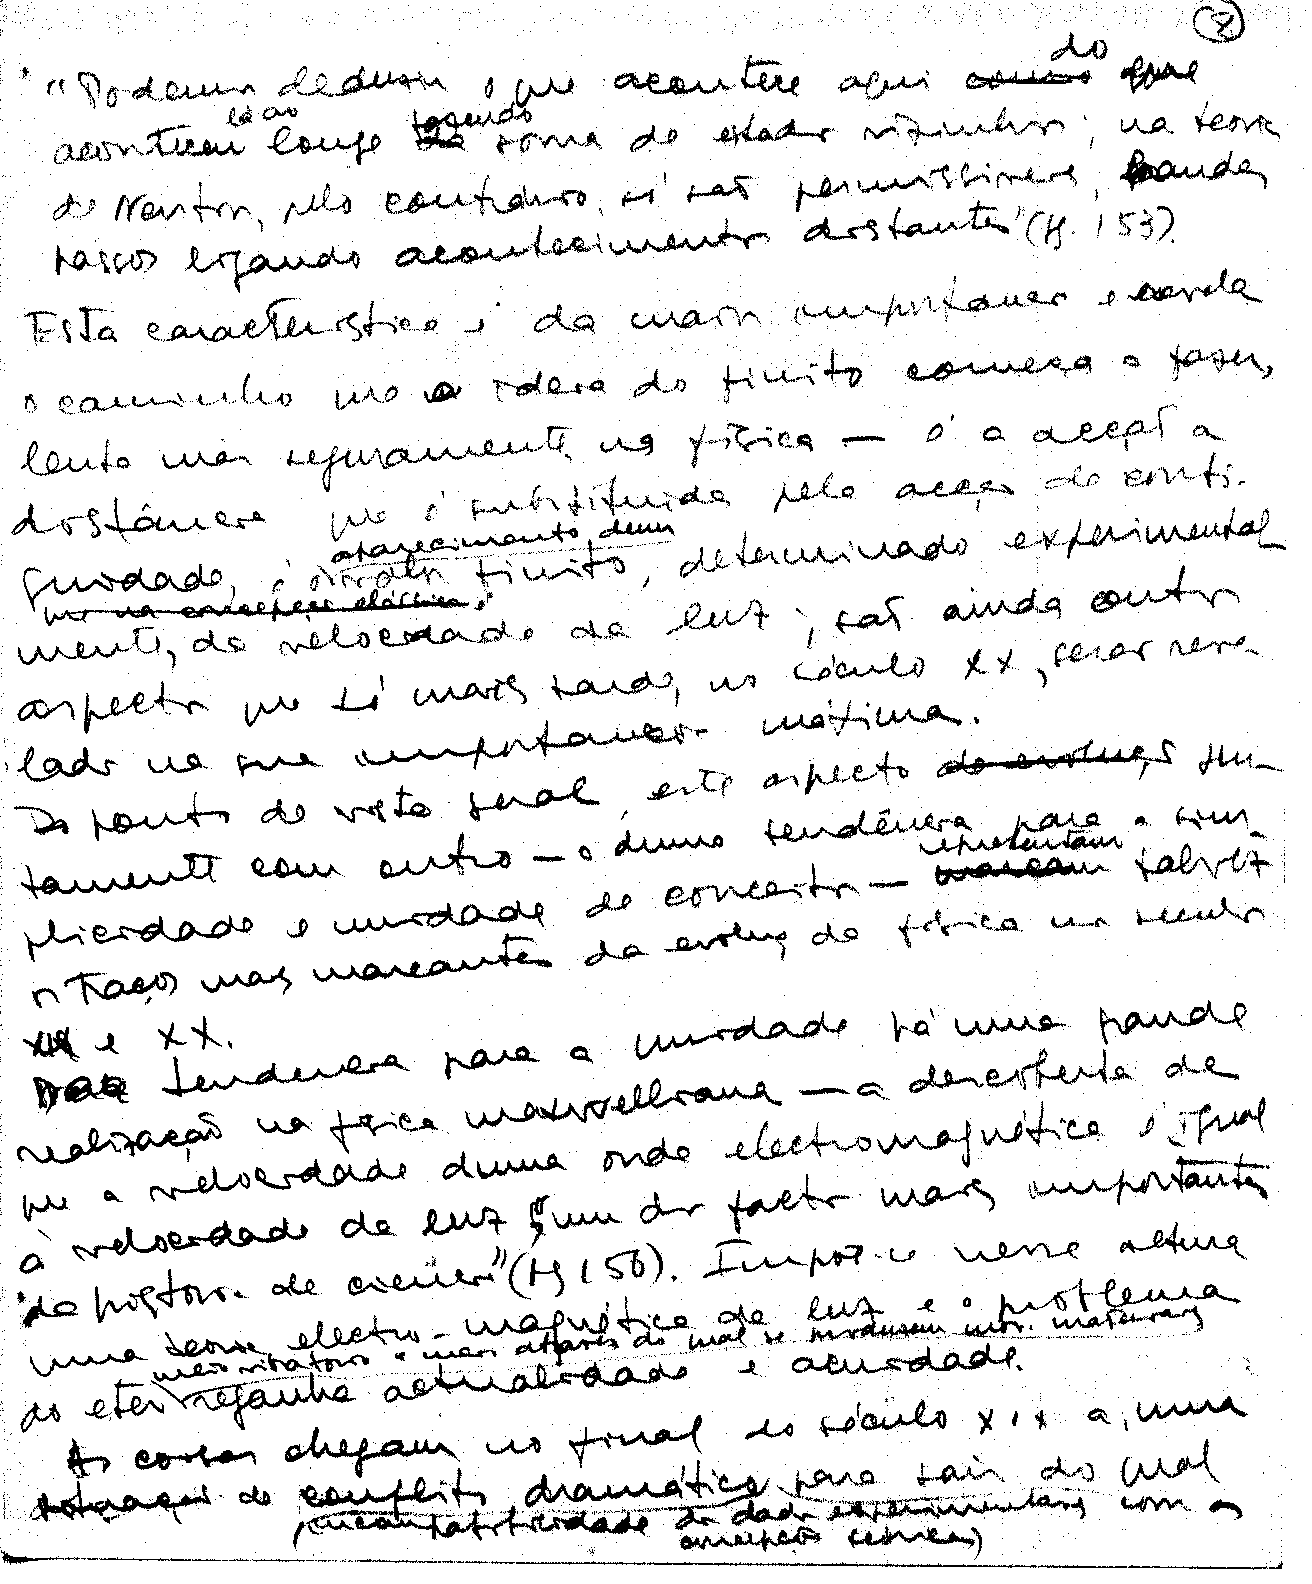 "Podemos deduzir o que acontece aqui ~~como~~ do que
aconteceu lá ao longe fazendo a soma de estados vizinhos; na teoria
de Newton, pelo contrário, só são permissíveis grandes
passos ligando acontecimentos distantes" (pg. 153).
Esta característica é da maior importância e revela
o caminho que a ideia do finito começa a fazer,
lenta mas seguramente, na física — é a acção a
distância que é substituída pela acção de conti-
guidade, é o aparecimento, dum valor finito, determinado experimental
~~que na concepção clássica,~~
mente, da velocidade da luz; são ainda outros
aspectos que só mais tarde, no século XX, serão reve
lados na sua importância máxima.
Do ponto de vista geral, este aspecto ~~da evolução~~ jun-
tamente com outro — o duma tendência para a sim-
plicidade e unidade de conceitos — ~~marcam~~ representam talvez
os traços mais marcantes da evolução da física nos séculos
XIX e XX.
tendência para a unidade há uma grande
realização na física maxwelliana — a descoberta de
que a velocidade duma onda electromagnética é igual
à velocidade da luz, "um dos factos mais importantes
da história da ciência" (pg 156). Impõe-se nessa altura
uma teoria electro-magnética da luz e o problema
do eter, meio vibratório e meio através do qual se produzem mov. materiais, reganha actualidade e acuidade.
As coisas chegam no final do século XIX a uma
situação de conflito dramático para sair do qual
(incompatibilidade de dados experimentais com as
concepções teóricas)